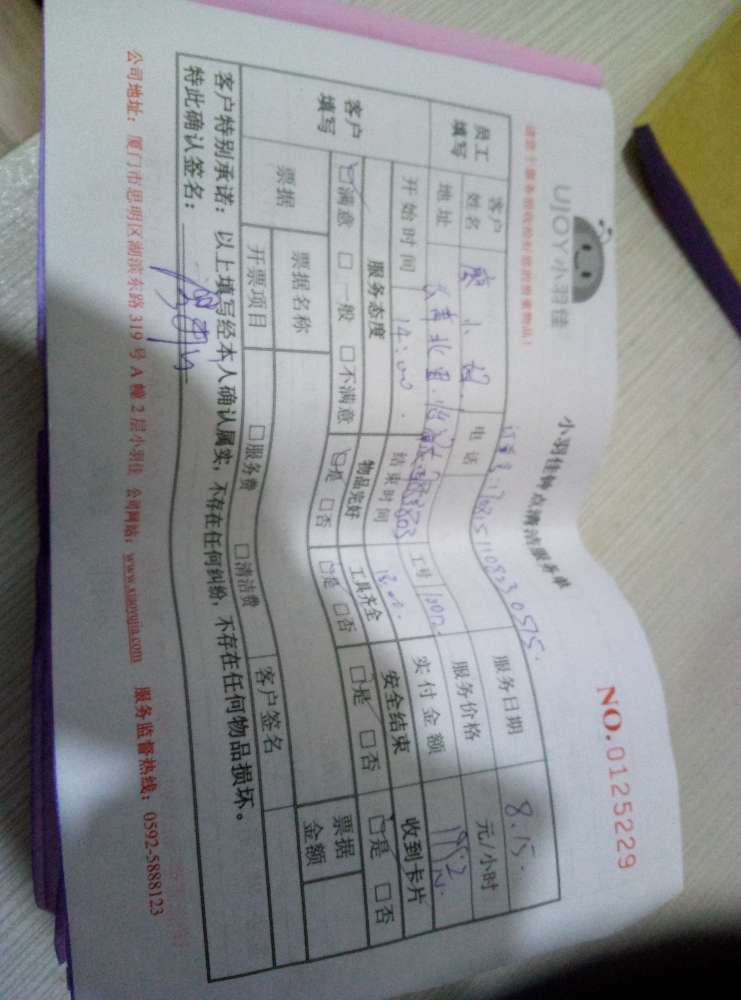 UJOY小羽佳
小羽佳钟点清洁服务单
NO.0125229
员工填写
客户姓名
小姐
电话
服务日期
8.15.
地址
工号
服务价格
元/小时
开始时间
14:00.
结束时间
18:00.
实付金额
客户填写
服务态度
物品完好
工具齐全
安全结束
收到卡片
□满意 □一般 □不满意
□是 □否
□是 □否
□是 □否
□是 □否
票据
票据名称
票据金额
开票项目
□服务费 □清洁费
客户签名
客户特别承诺：以上填写经本人确认属实，不存在任何纠纷，不存在任何物品损坏。
特此确认签名：
公司地址：厦门市思明区湖滨东路319号A幢2层小羽佳 公司网站：www.xiaoyujia.com 服务监督热线：0592-5888123